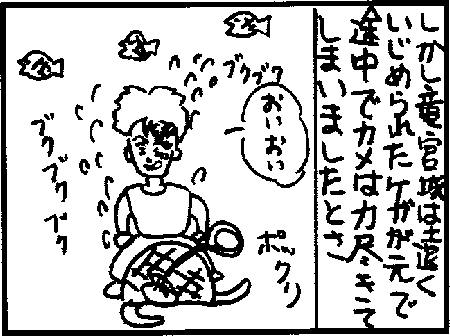 しかし竜宮城は遠く
いじめられたケガが元で
途中でカメは力尽きて
しまいましたとさ
ブクブク
おいおい
ブクブクブク
ポックリ